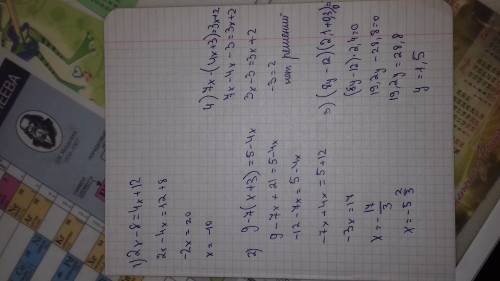 1) 2x-8=4x+12
2x-4x=12+8
-2x=20
x=-10
2) 9-7(x+3)=5-4x
9-7x+21=5-4x
-12-7x=5-4x
-7x+4x=5+12
-3x=17
x=-17/3
x=-5 2/3
4) 7x-(4x+3)=3x+2
7x-4x-3=3x+2
3x-3=3x+2
-3=2
нет решений
5) (8y-12)(2,1+0,3)=
(8y-12)·2,4=0
19,2y-28,8=0
19,2y=28,8
y=1,5